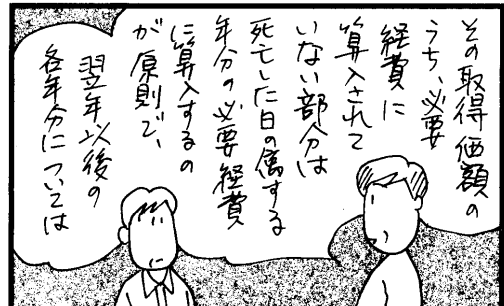 その取得価額の
うち、必要
経費に
算入されて
いない部分は
死亡した日の属する
年分の必要経費
に算入するの
が原則で、
翌年以後の
各年分については